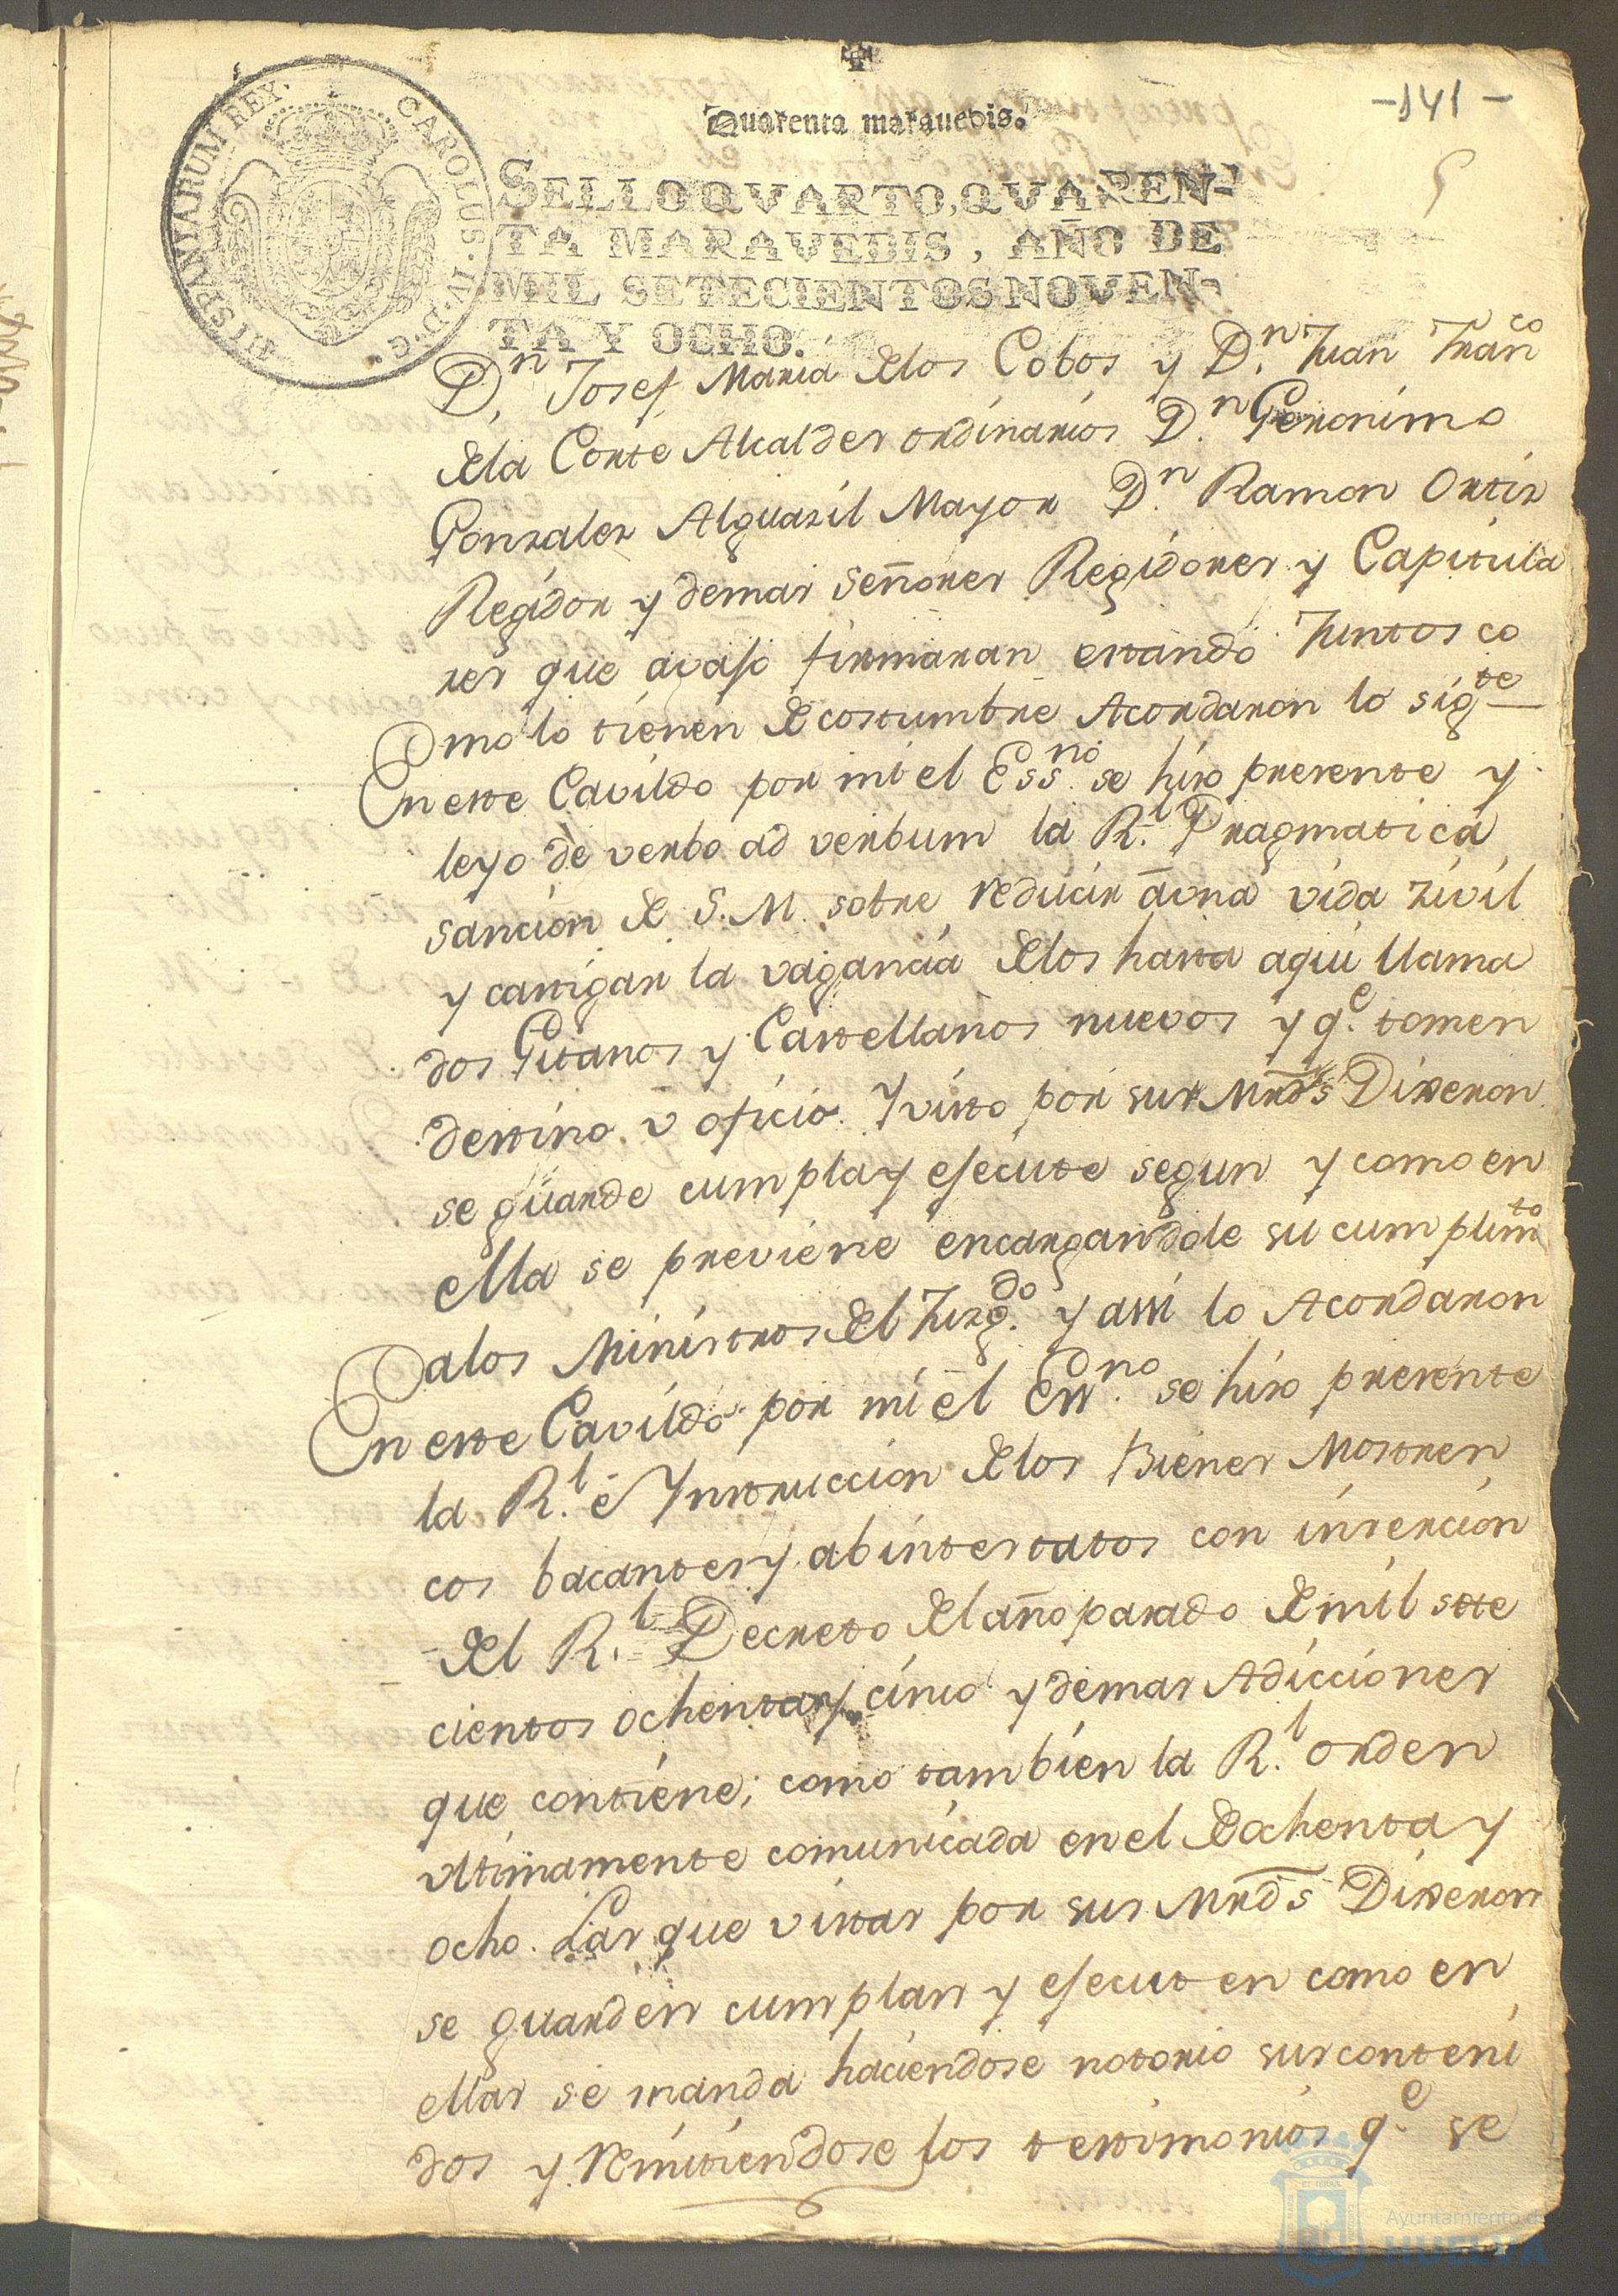 -141-
Quarenta maravedis.
SELLO QVARTO, QVAREN-
TA MARAVEDIS, AÑO DE
MIL SETECIENTOS NOVEN-
TA Y OCHO.
CAROLUS·IV·D·G· HISPANIARUM REX·
Dn. Josef Maria delos Cobos y Dn. Juan Franco
dela Corte Alcaldes ordinarios Dn. Geronimo
Gonzales Alguazil Mayor Dn. Ramon Ortiz
Regidor y demas señores Regidores y Capitula
res que avajo firmaran estando Juntos co
mo lo tienen de costumbre Acordaron lo sigte
En este Cavildo por mi el Essno. se hizo presente y
leyo de verbo ad verbum la Rl. Pragmatica
sancion de S.M. sobre reducir a una vida zivil
y castigar la vagancia delos hasta aqui llama
dos Gitanos y Castellanos nuevos y qe. tomen
destino v oficio. Y visto por sus Mrds Dixeron
se guarde cumpla y ejecute segun y como en
ella se previene encargandole su cumplimto
alos Ministros del Juzgdo. y assi lo Acordaron
En este Cavildo por mi el Essno. se hizo presente
la Rl. e Ynstruccion delos Bienes Mostren
cos bacantes y abintestatos con insercion
del Rl. Decreto del año pasado de mil sete
cientos ochenta y cinco y demas Adicciones
que contiene; como tambien la Rl. orden
vltimamente comunicada en el de ochenta y
ocho. Las que vistas por sus Mrds Dixeron
se guarden cumplan y ejecuten como en
ellas se manda haciendose notorio sus conteni
dos y remitiendose los testimonios qe. se
Ayuntamiento de
HUELVA